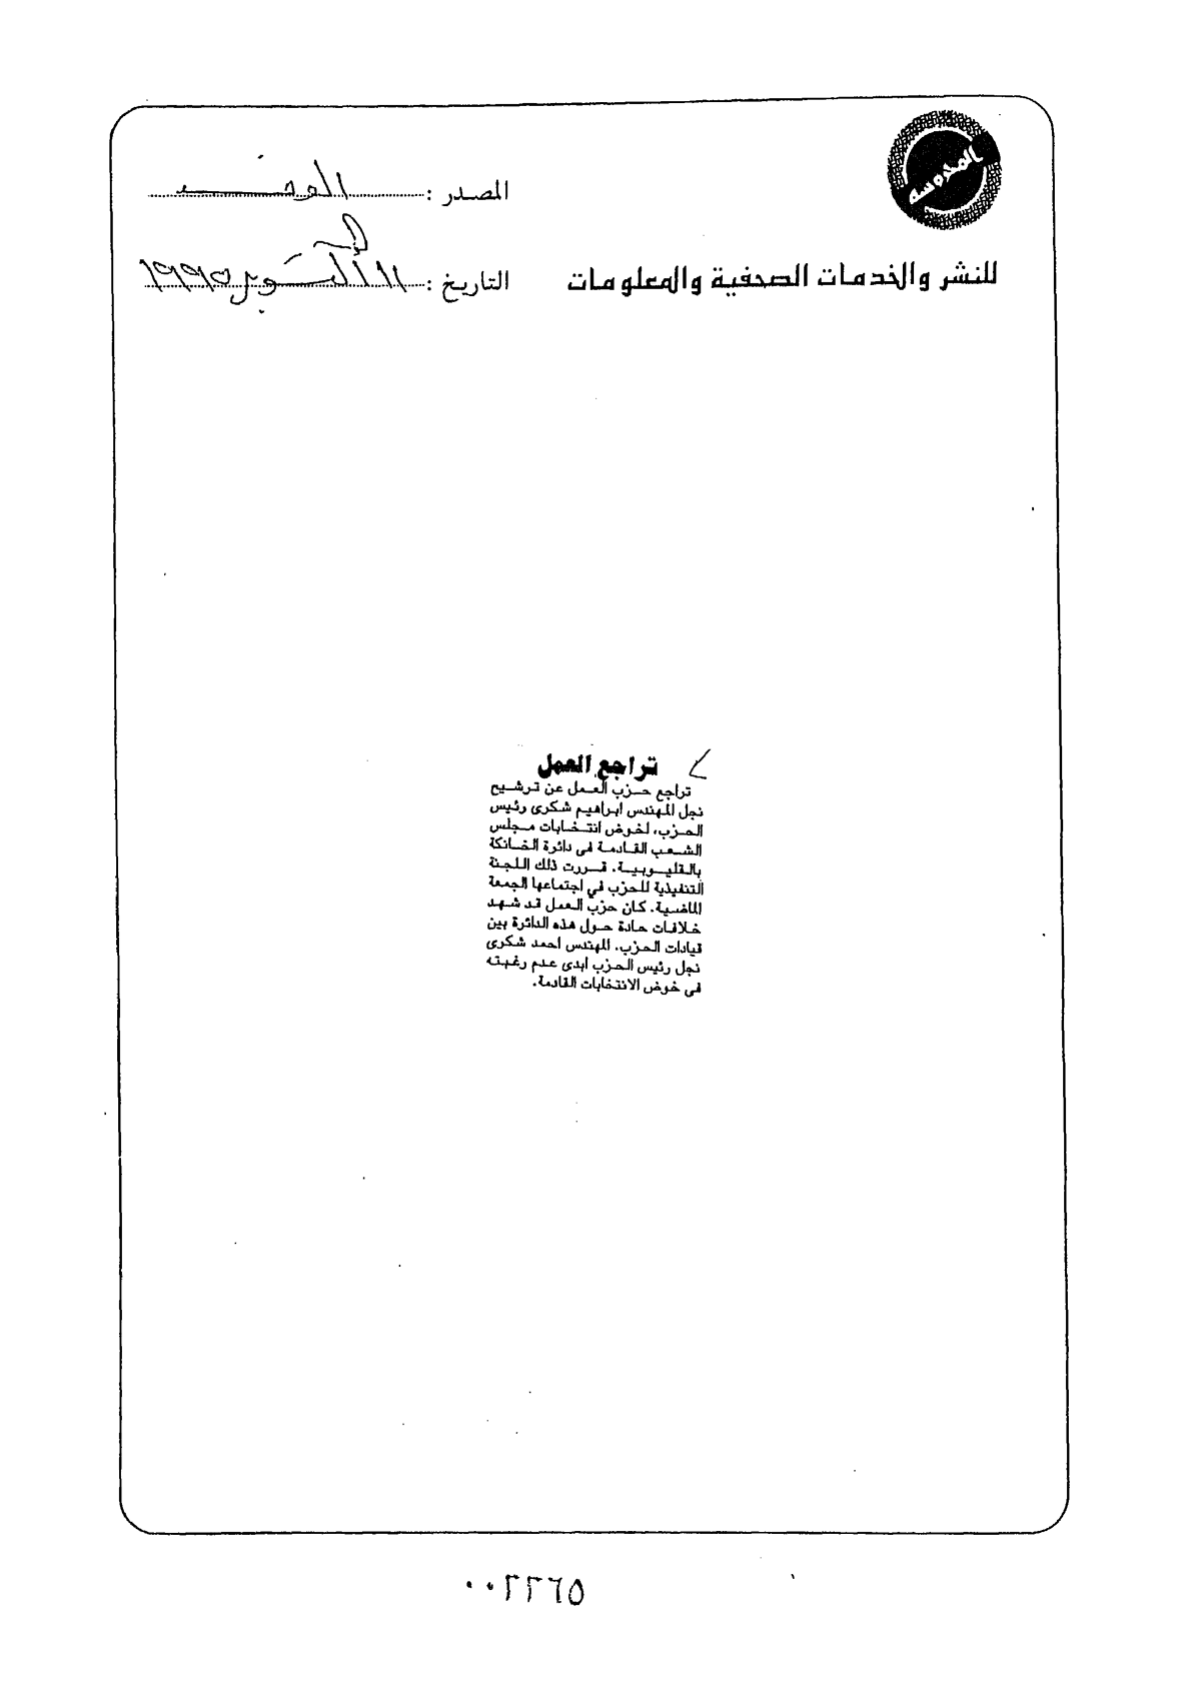 المحروسة
المصدر : الوفد
للنشر والخدمات الصحفية والمعلومات
التاريخ : ١١ أكتوبر ١٩٩٥
تراجع العمل
تراجع حزب العمل عن ترشيح
نجل المهندس ابراهيم شكرى رئيس
الحزب، لخوض انتخابات مجلس
الشعب القادمة فى دائرة الخانكة
بالقليوبية. قررت ذلك اللجنة
التنفيذية للحزب في اجتماعها الجمعة
الماضية. كان حزب العمل قد شهد
خلافات حادة حول هذه الدائرة بين
قيادات الحزب. المهندس احمد شكرى
نجل رئيس الحزب ابدى عدم رغبته
فى خوض الانتخابات القادمة.
٠٠٢٢٦٥